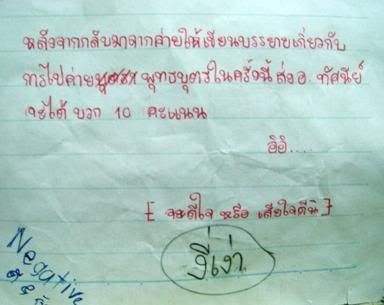 หลังจากกลับมาจากค่ายให้เขียนบรรยายเกี่ยวกับ
การไปค่าย พุทธบุตรในครั้งนี้ ส่ง อ. ทัศนีย์
จะได้ บวก 10 คะแนน
อิอิ....
[ จะดีใจ หรือ เสียใจดีนิ ]
งี่เง่า
Negative